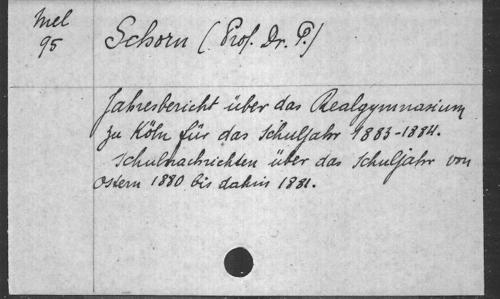 Mel
95
Schorn (Prof. Dr. P.)
Jahresbericht über das Realgymnasium
zu Köln für das Schuljahr 1883-1884.
Schulnachrichten über das Schuljahr von
Ostern 1880 bis dahin 1881.